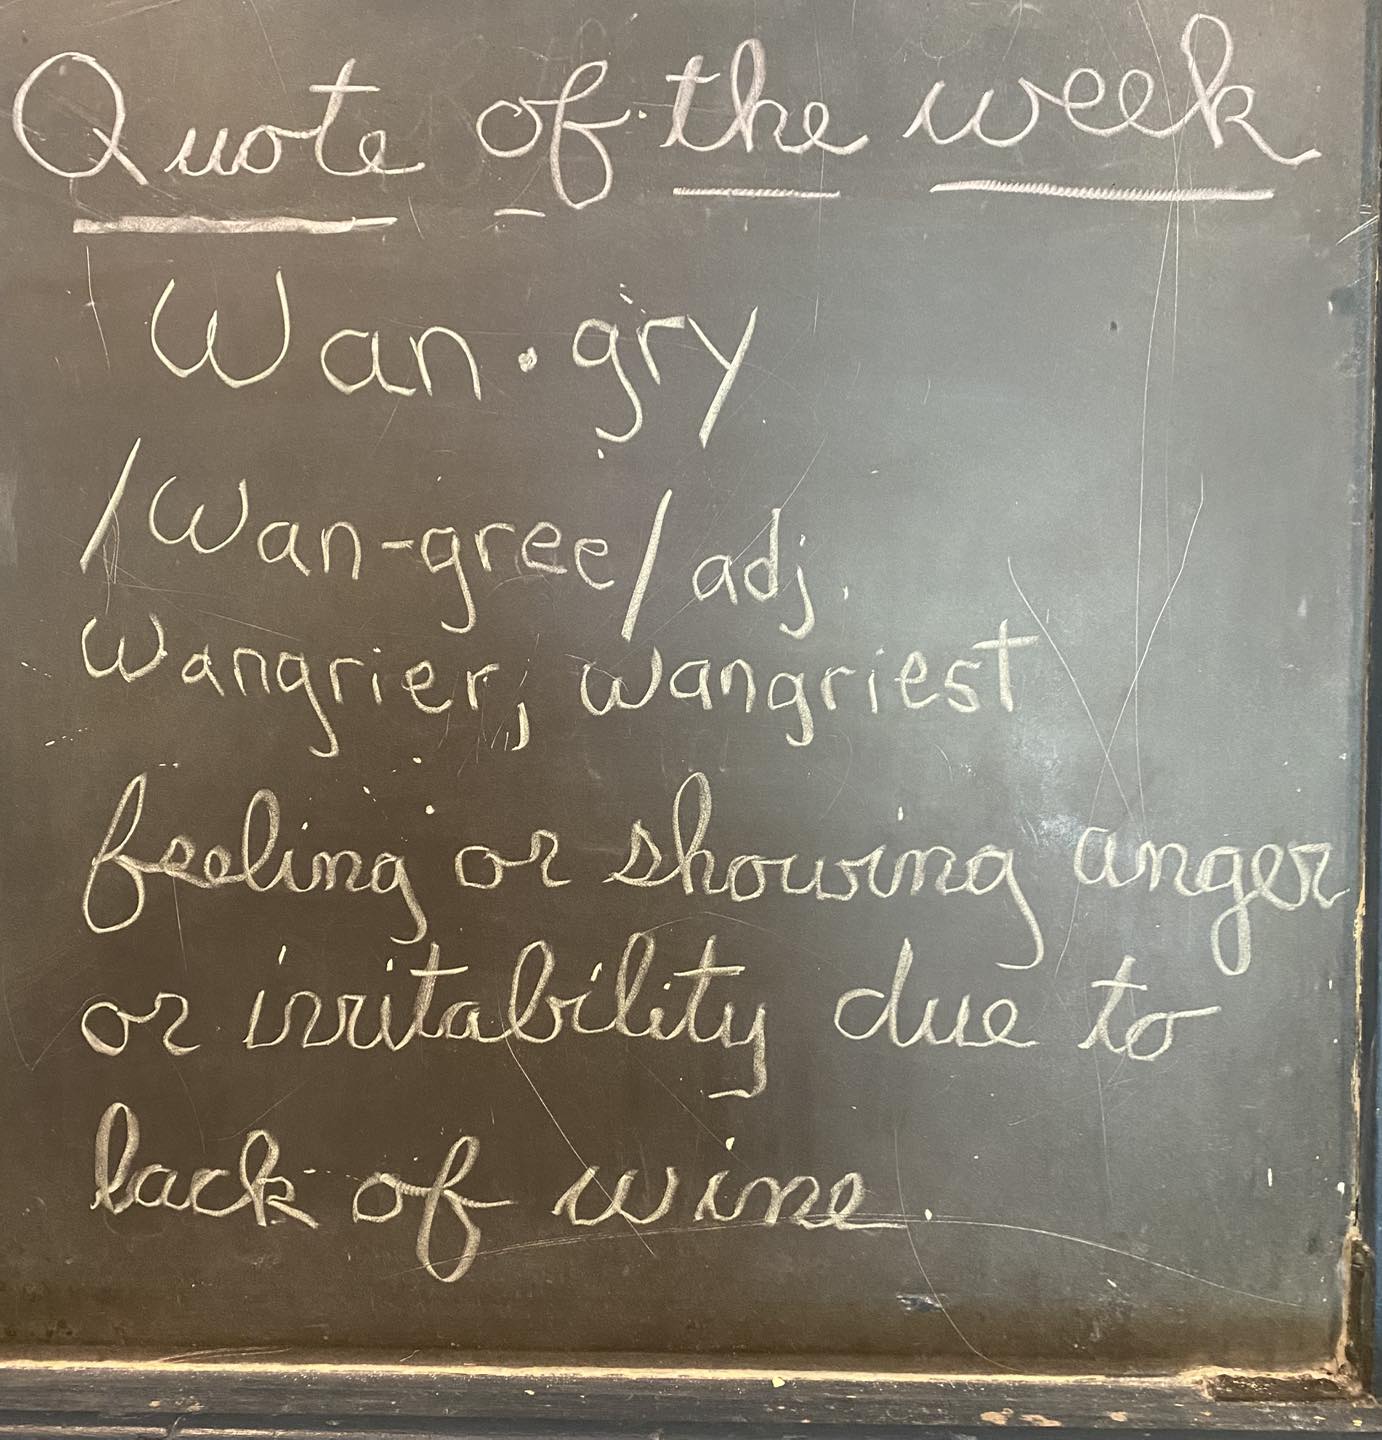 Quote of the week
Wan·gry
/Wan-gree/ adj.
Wangrier, wangriest
feeling or showing anger
or irritability due to
lack of wine.